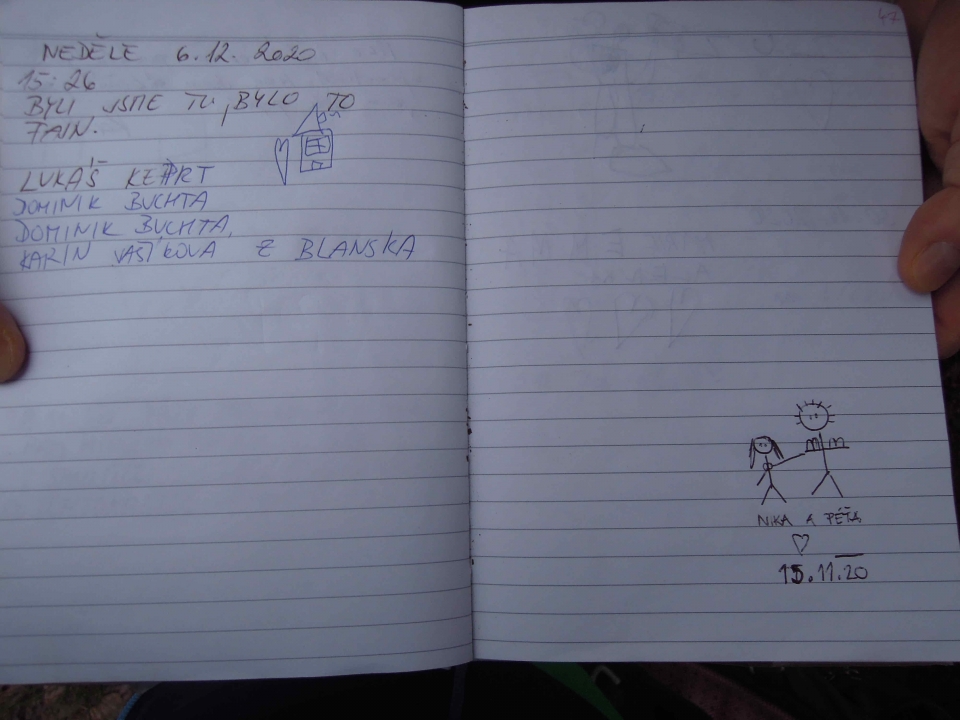 NEDĚLE 6.12. 2020
15:26
BYLI JSME TU, BYLO TO
FAJN.
LUKÁŠ
DOMINIK BUCHTA
DOMINIK BUCHTA,
KARIN VAŠÍKOVA Z BLANSKA
47
NIKA A PÉŤA
15.11.20